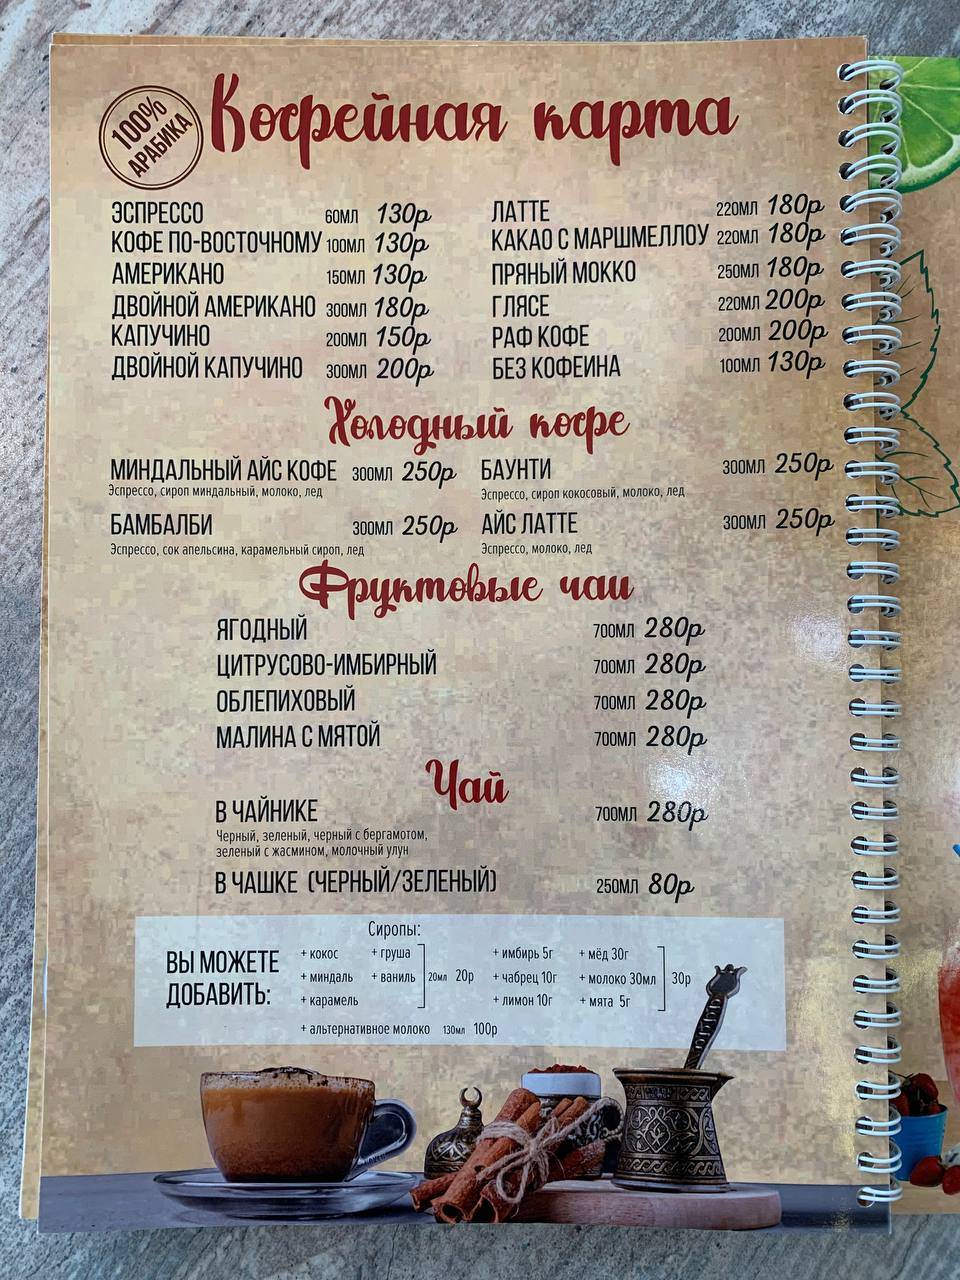 100%
АРАБИКА
Кофейная карта
ЭСПРЕССО 60МЛ 130р
КОФЕ ПО-ВОСТОЧНОМУ 100МЛ 130р
АМЕРИКАНО 150МЛ 130р
ДВОЙНОЙ АМЕРИКАНО 300МЛ 180р
КАПУЧИНО 200МЛ 150р
ДВОЙНОЙ КАПУЧИНО 300МЛ 200р
ЛАТТЕ 220МЛ 180р
КАКАО С МАРШМЕЛЛОУ 220МЛ 180р
ПРЯНЫЙ МОККО 250МЛ 180р
ГЛЯСЕ 220МЛ 200р
РАФ КОФЕ 200МЛ 200р
БЕЗ КОФЕИНА 100МЛ 130р
Холодный кофе
МИНДАЛЬНЫЙ АЙС КОФЕ 300МЛ 250р
Эспрессо, сироп миндальный, молоко, лед
БАМБАЛБИ 300МЛ 250р
Эспрессо, сок апельсина, карамельный сироп, лед
БАУНТИ 300МЛ 250р
Эспрессо, сироп кокосовый, молоко, лед
АЙС ЛАТТЕ 300МЛ 250р
Эспрессо, молоко, лед
Фруктовые чаи
ЯГОДНЫЙ 700МЛ 280р
ЦИТРУСОВО-ИМБИРНЫЙ 700МЛ 280р
ОБЛЕПИХОВЫЙ 700МЛ 280р
МАЛИНА С МЯТОЙ 700МЛ 280р
Чай
В ЧАЙНИКЕ 700МЛ 280р
Черный, зеленый, черный с бергамотом,
зеленый с жасмином, молочный улун
В ЧАШКЕ (ЧЕРНЫЙ/ЗЕЛЕНЫЙ) 250МЛ 80р
ВЫ МОЖЕТЕ
ДОБАВИТЬ:
Сиропы:
+ кокос + груша
+ миндаль + ваниль 20мл 20р
+ карамель
+ имбирь 5г + мёд 30г
+ чабрец 10г + молоко 30мл 30р
+ лимон 10г + мята 5г
+ альтернативное молоко 130мл 100р